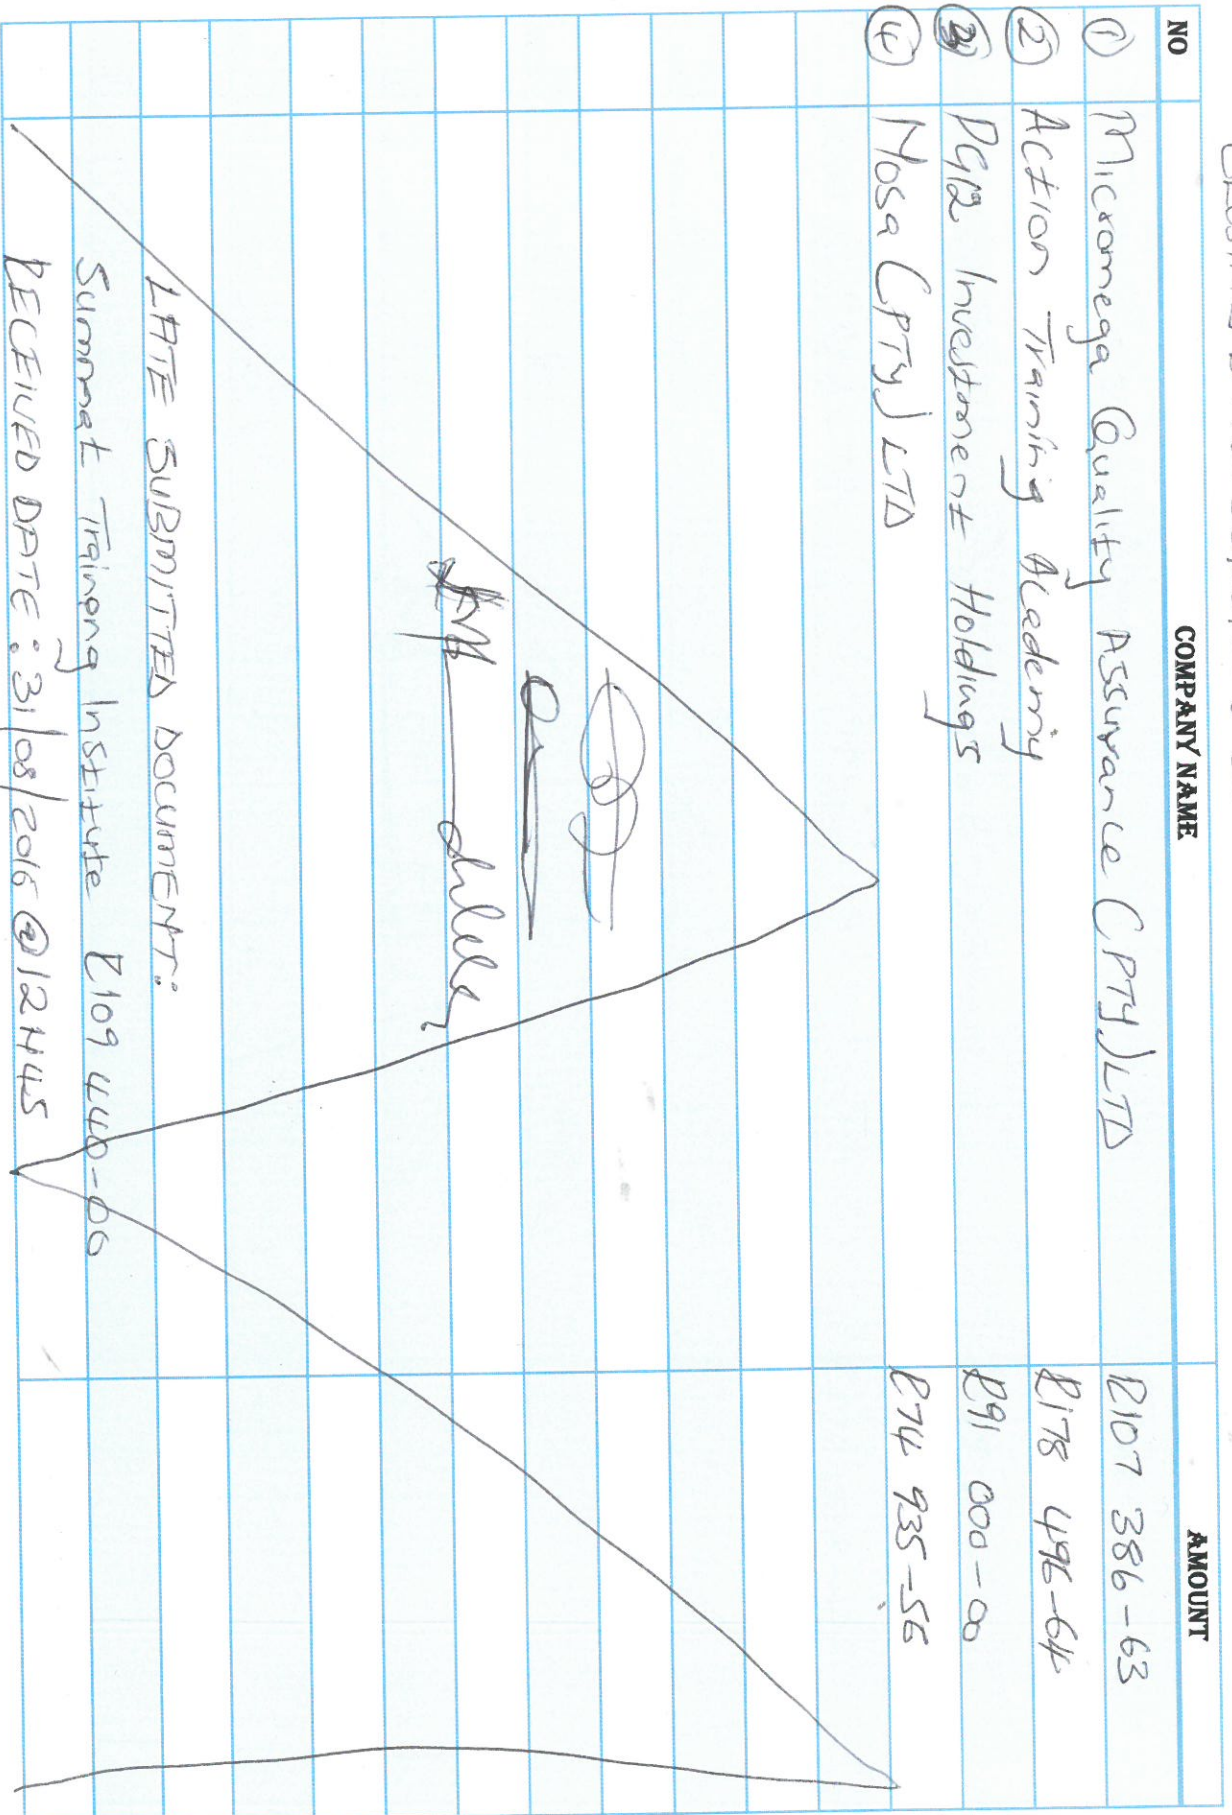 NO COMPANY NAME AMOUNT
1 Micromega Quality Assurance (PTY) LTD R107 386-63
2 Action Training Academy R178 496-64
3 PGR Investment Holdings R91 000-00
4 Nosa (PTY) LTD R74 935-56
LATE SUBMITTED DOCUMENT:
Summat Training Institute R109 440-00
RECEIVED DATE: 31/08/2016 @ 12H45